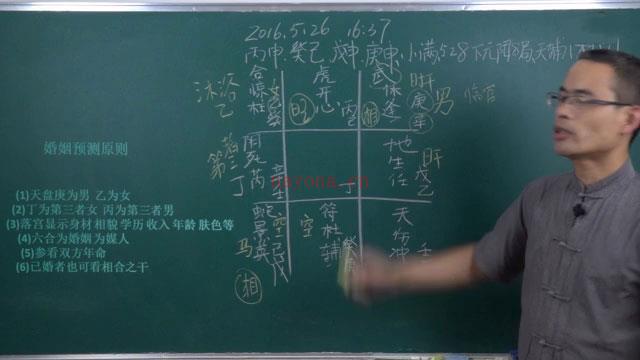 2016.5.26 16:37
丙申 癸巳 戊申 庚申 小满 528 下元 阳8局
婚姻预测原则
(1)天盘庚为男 乙为女
(2)丁为第三者女 丙为第三者男
(3)落宫显示身材 相貌 学历 收入 年龄 肤色等
(4)六合为婚姻 为媒人
(5)参看双方年命
(6)已婚者也可看相合之干
沐浴
乙
合
惊
柱
女
旺
虎
开
心
丙
相
武
休
蓬
肝
庚
辛
男
临官
第三者
丁
死
芮
地
生
任
肝
戊
乙
蛇
景
英
马
相
空
己
戊
空
符
杜
辅
癸
天
伤
冲
壬
nayona.cn